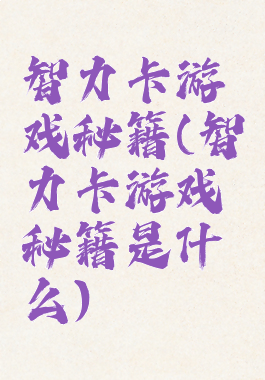 智力卡游
戏秘籍(智
力卡游戏
秘籍是什
么)